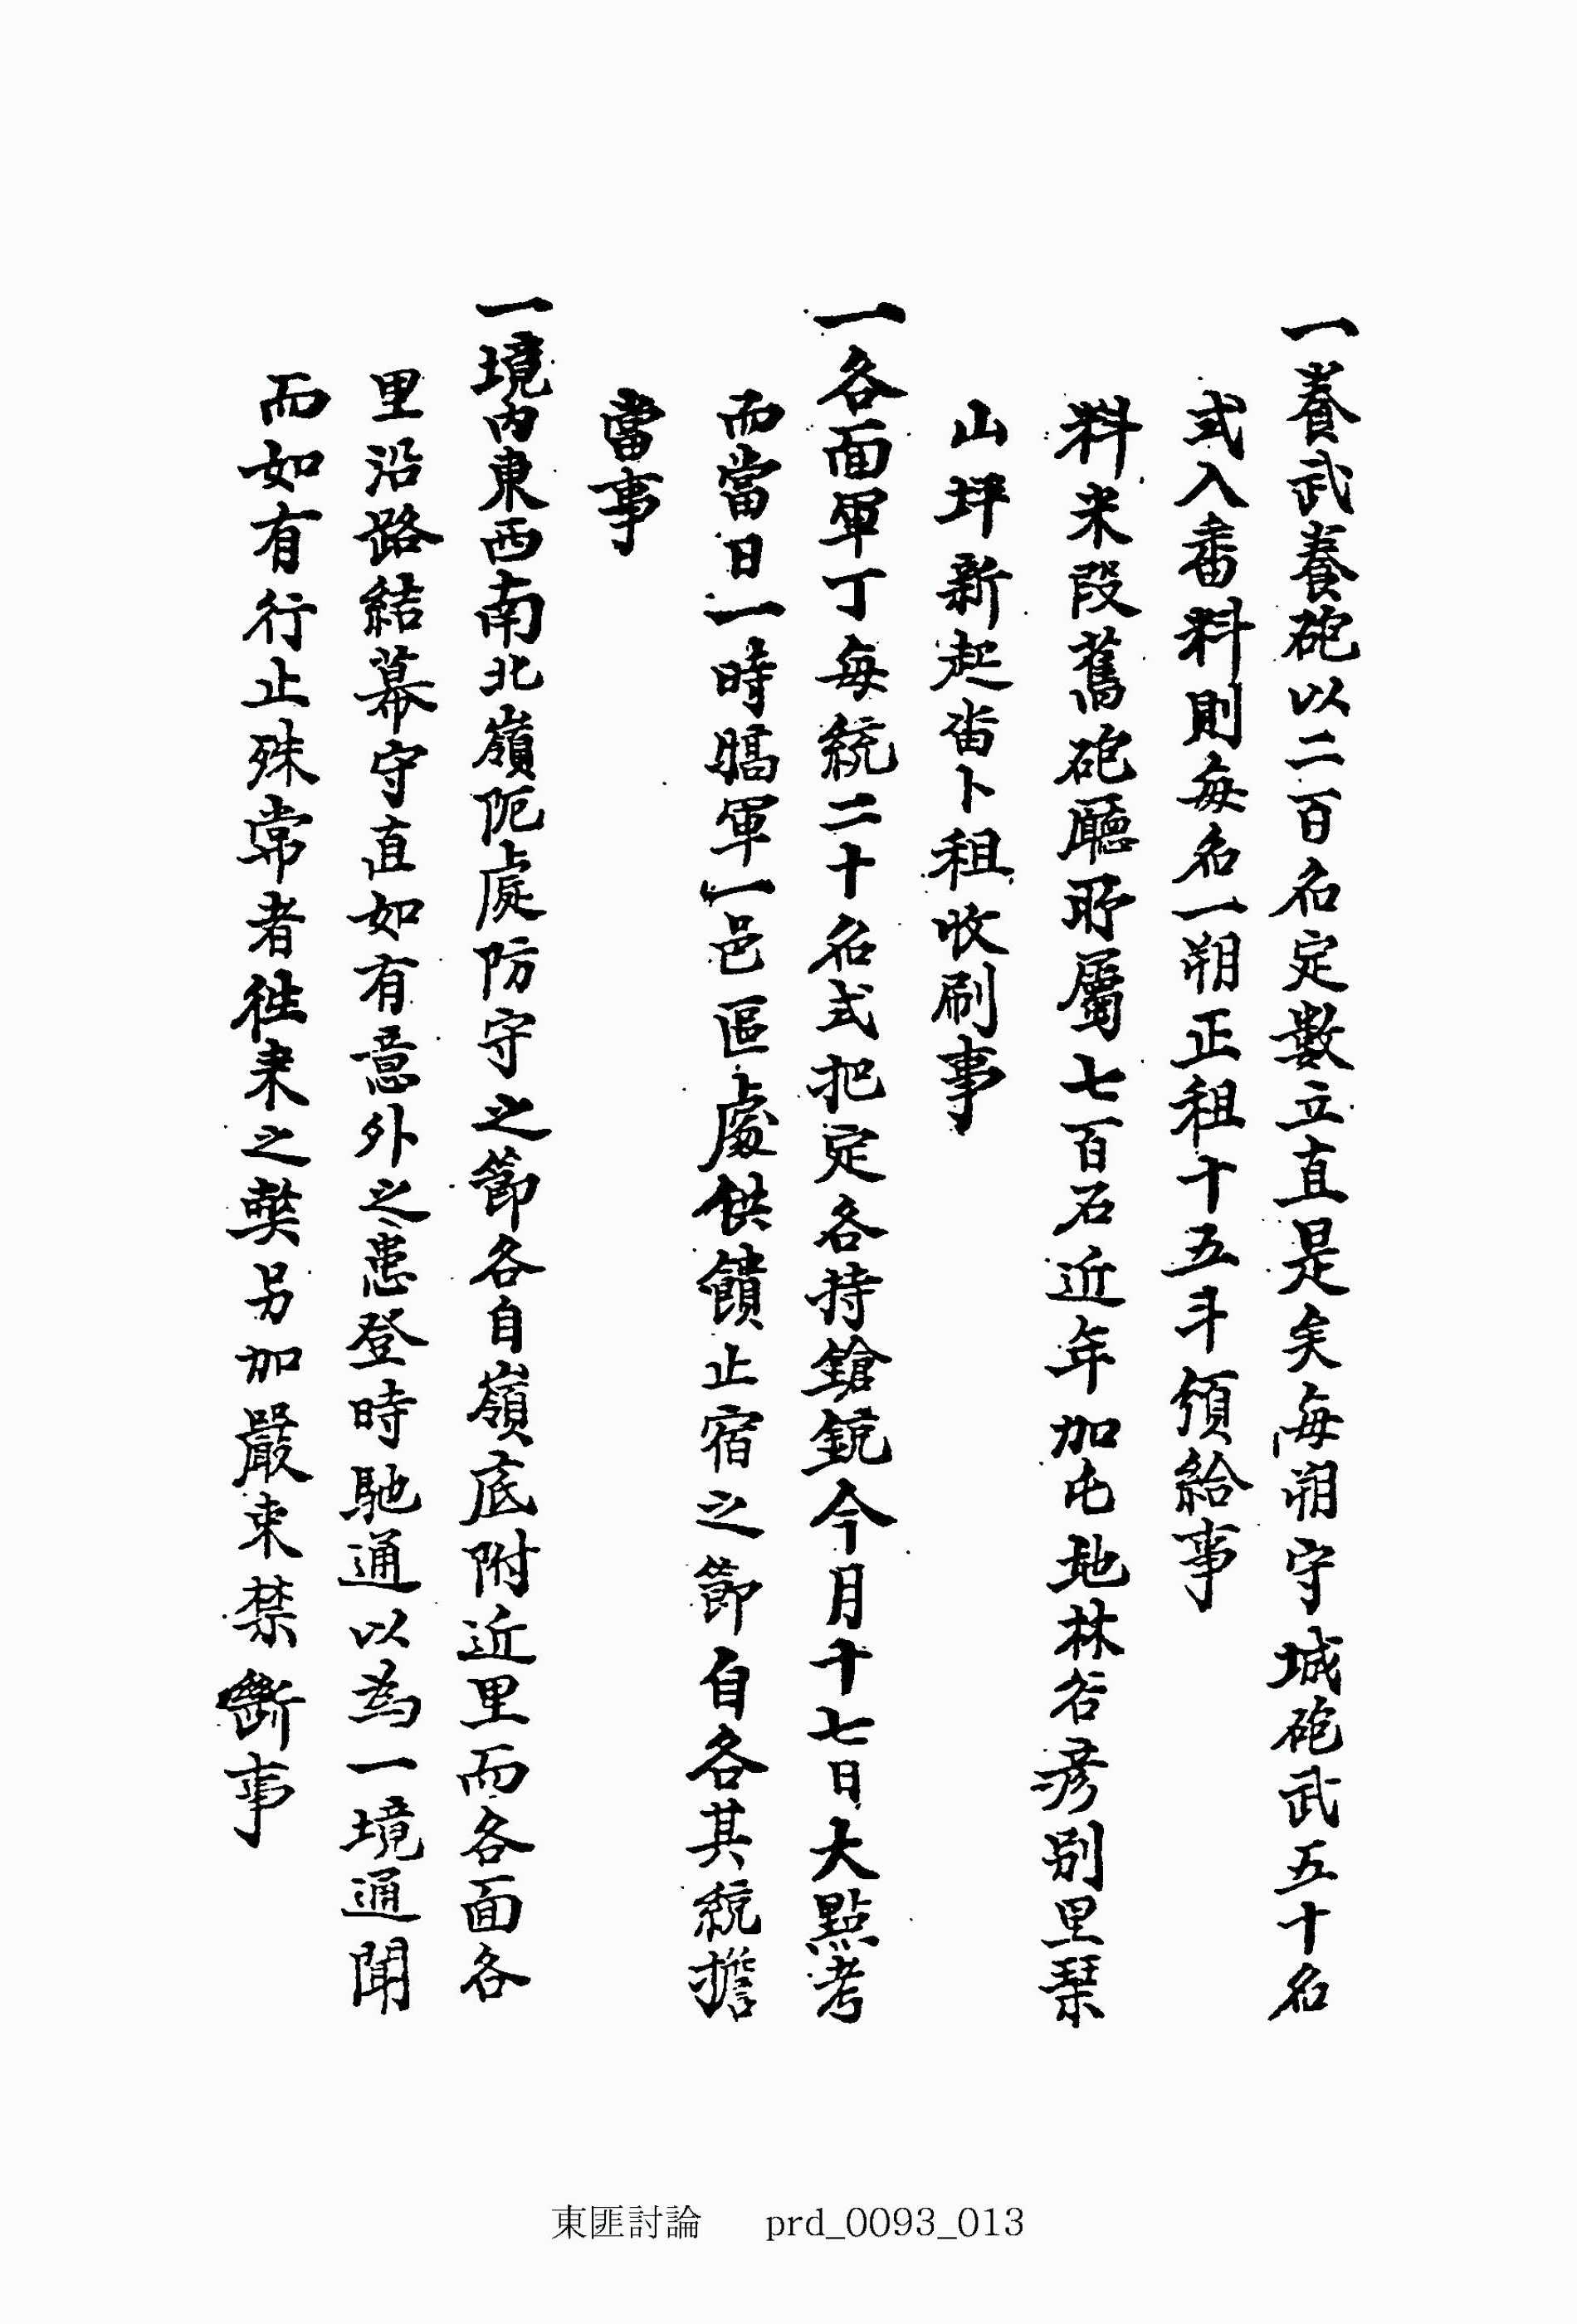 一養武養砲以二百名定數立直是矣每朔守城砲武五十名
式入番料則每名一朔正租十五斗頒給事
料米段舊砲廳所屬七百石近年加屯地林谷彦別里琹
山坪新起畓卜租收刷事
一各面軍丁每統二十名式把定各持鎗銃今月十七日大點考
而當日一時犒軍一邑區處供饋止宿之節自各其統擔
當事
一境內東西南北嶺阨處防守之節各自嶺底附近里而各面各
里沿路結幕守直如有意外之患登時馳通以爲一境通聞
而如有行止殊常者徃來之獘另加嚴束禁斷事
東匪討論 prd_0093_013